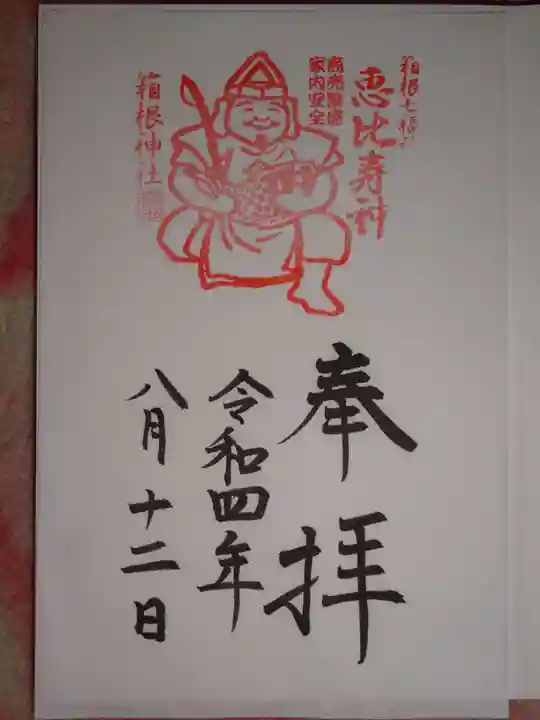 箱根七福神
恵比寿神
商売繁盛
家内安全
箱根神社
奉拝
令和四年
八月十二日